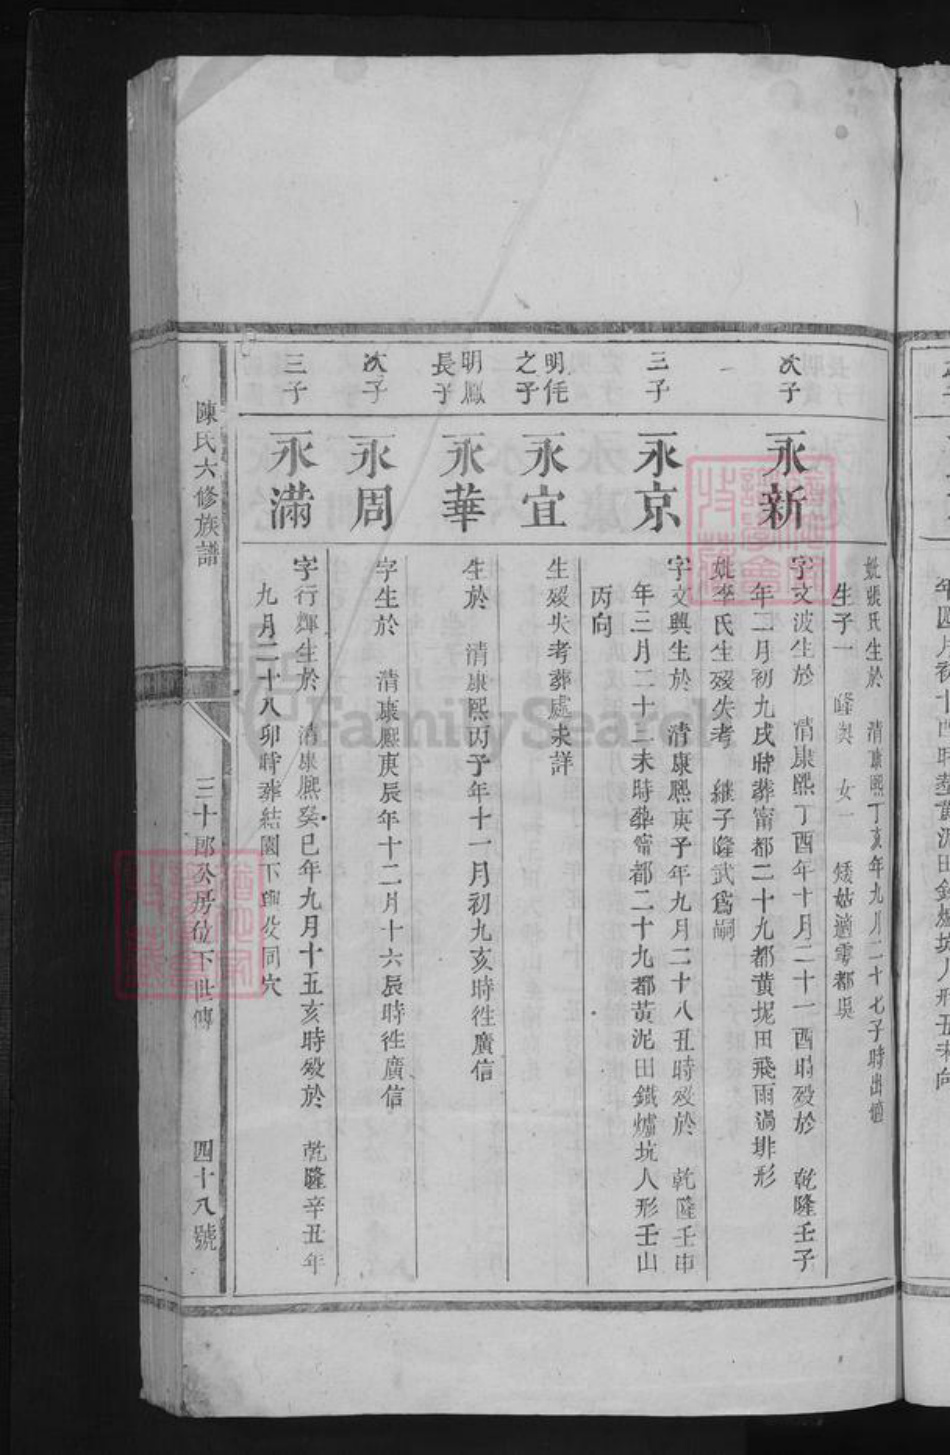 妣張氏生於　清康熙丁亥年九月二十七子時出適
生子一　隆輿　女一　矮姑適雩都吳
次子
永新
字文波生於　清康熙丁酉年十月二十一酉時歿於　乾隆壬子
年二月初九戌時葬甯都二十九都黄坭田飛雨過排形
妣李氏生歿失考　継子隆武爲嗣
三子
永京
字文興生於　清康熙庚子年九月二十八丑時歿於　乾隆壬申
年三月二十三未時葬甯都二十九都黃泥田鐵爐坑人形壬山
丙向
明侂
之子
永宜
生歿失考葬處未詳
明鳳
長子
永華
生於　清康熙丙子年十一月初九亥時徃廣信
次子
永周
字生於　清康熙庚辰年十二月十六辰時徃廣信
三子
永滿
字行輝生於　清康熙癸巳年九月十五亥時歿於　乾隆辛丑年
九月二十八卯時葬結園下與父同穴
陳氏六修族譜
三十郎公房位下世傳
四十八號
年四月初十酉時葬黃泥田鉄爐坑人形丑未向
FamilySearch